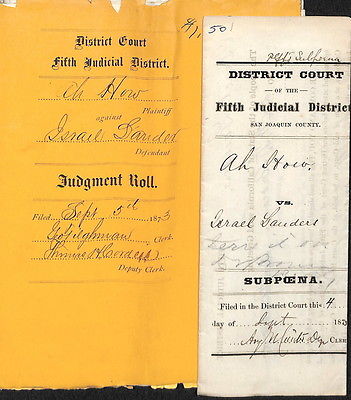 District Court
Fifth Judicial District.
Ah How
Plaintiff
against
Israel Sanders
Defendant
Judgment Roll.
Filed Sept 5d 1873
Clerk.
Deputy Clerk.
4/1.50
DISTRICT COURT
OF THE
Fifth Judicial District
SAN JOAQUIN COUNTY.
Ah How.
VS.
Israel Sanders
SUBPŒNA.
Filed in the District Court this 4
day of Sept 187
CLERK